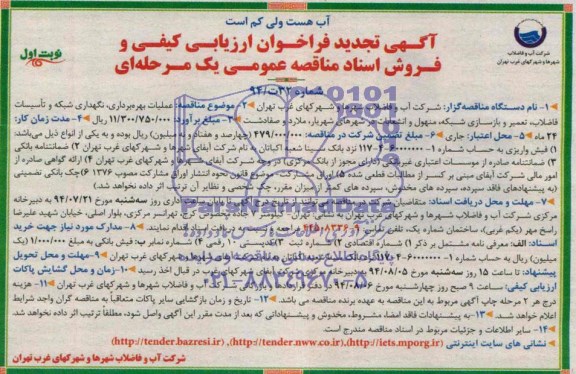 آب هست ولی کم است
آگهی تجدید فراخوان ارزیابی کیفی و
فروش اسناد مناقصه عمومی یک مرحله‌ای
نوبت اول
شرکت آب و فاضلاب
شهرها و شهرکهای غرب تهران
شماره ۳۲-ت/۹۴
۱- نام دستگاه مناقصه‌گزار: شرکت آب و فاضلاب شهرها و شهرکهای غرب تهران ۲- موضوع مناقصه: عملیات بهره‌برداری، نگهداری شبکه و تأسیسات
فاضلاب، تعمیر و بازسازی شبکه، منهول و انشعابات در شهرهای شهریار، ملارد و صفادشت ۳- مبلغ برآورد: ۱۱/۳۰۰/۷۵۰/۰۰۰ ریال ۴- مدت زمان کار:
۲۴ ماه ۵- محل اعتبار: جاری ۶- مبلغ تضمین شرکت در مناقصه: ۴۷۹/۰۰۰/۰۰۰ (چهارصد و هفتاد و نه میلیون) ریال بوده و به یکی از انواع ذیل می‌باشد:
۱) فیش واریزی به حساب شماره نزد بانک سینا شعبه اکباتان به نام شرکت آبفای شهرها و شهرکهای غرب تهران ۲) ضمانتنامه بانکی
۳) ضمانتنامه صادره از موسسات اعتباری غیر بانکی دارای مجوز از بانک مرکزی) در وجه شرکت آبفای شهرها و شهرکهای غرب تهران ۴) ارائه گواهی صادره از
امور مالی شرکت آبفای مبنی بر کسر از مطالبات قطعی شده ۵) اوراق مشارکت موضوع قانون نحوه انتشار اوراق مشارکت مصوب ۱۳۷۶ ۶) چک بانکی تضمینی
(به پیشنهادهای فاقد سپرده، سپرده های مخدوش، سپرده های کمتر از میزان مقرر، چک شخصی و نظایر آن ترتیب اثر داده نخواهد شد)
۷- مهلت و محل دریافت اسناد: متقاضیان روز سه‌شنبه مورخ ۹۴/۰۷/۲۱ به دبیرخانه
مرکزی شرکت آب و فاضلاب شهرها و شهرکهای غرب تهران به نشانی تهران کرج، تهرانسر مرکزی، بلوار اصلی، خیابان شهید علیرضا
راسخ مهر (یکم غربی)، ساختمان شماره یک، تلفن دریافت اسناد اقدام نمایند. ۸- مدارک مورد نیاز جهت خرید
اسناد: الف: معرفی نامه مشتمل بر ذکر ۱) شماره اقتصادی ۲) شماره ثبت ۳) کدپستی ۱۰ رقمی ۴) شماره نمابر ب: فیش بانکی به مبلغ ۱/۰۰۰/۰۰۰ (یک
میلیون) ریال به حساب شماره شهرها و شهرکهای غرب تهران ۹- مهلت و محل تحویل
پیشنهاد: تا ساعت ۱۵ روز سه‌شنبه مورخ ۹۴/۰۸/۰۵ به دبیرخانه شهرکهای غرب تهران در قبال اخذ رسید ۱۰- زمان و محل گشایش پاکات
ارزیابی کیفی: ساعت ۹ صبح روز چهارشنبه مورخ ۹۴/۰۸/۰۶ در دفتر آب و فاضلاب شهرها و شهرکهای غرب تهران ۱۱- هزینه
درج هر ۲ مرحله چاپ آگهی مربوط به این مناقصه به عهده برنده مناقصه می باشد. ۱۲- تاریخ و زمان بازگشایی سایر پاکات متعاقباً به مناقصه گران واجد شرایط
اعلام خواهد شد. ۱۳- به پیشنهادات فاقد امضاء مشروط، مخدوش و پیشنهاداتی که بعد از مدت مقرر این آگهی واصل شود، مطلقاً ترتیب اثر داده نخواهد شد.
۱۴- سایر اطلاعات و جزئیات مربوط در اسناد مناقصه مندرج است.
نشانی های سایت اینترنتی (http://iets.mporg.ir)، (http://tender.nww.co.ir)، (http://tender.bazresi.ir)
شرکت آب و فاضلاب شهرها و شهرکهای غرب تهران
ParsNamadData
۰۲۱-۸۸۳۴۹۶۷۰-۵